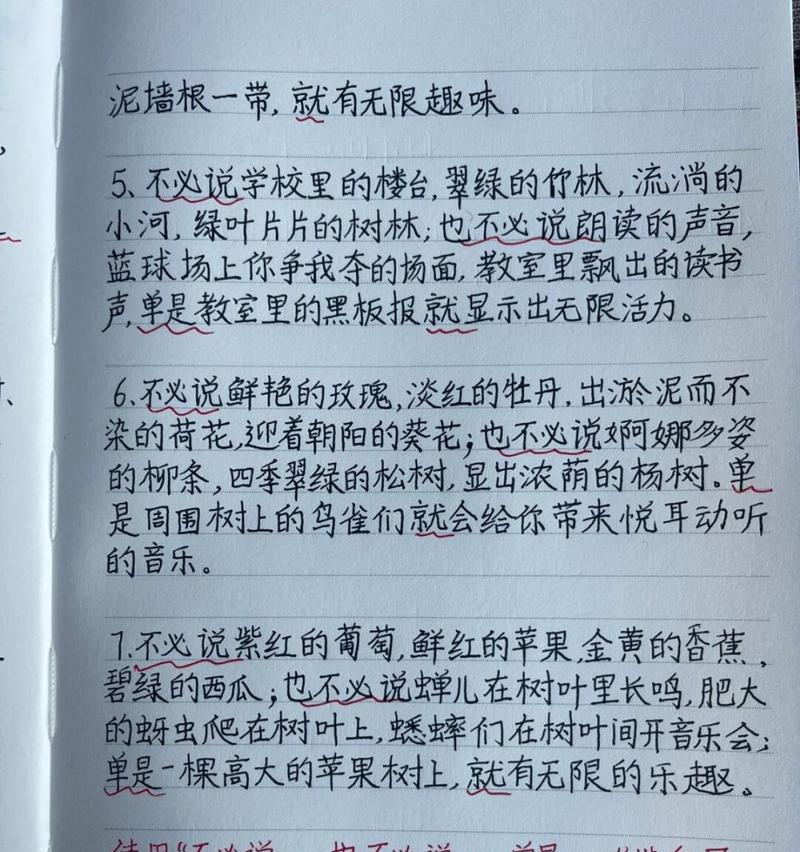 泥墙根一带,就有无限趣味。
5、不必说学校里的楼台,翠绿的竹林,流淌的
小河,绿叶片片的树林;也不必说朗读的声音,
蓝球场上你争我夺的场面,教室里飘出的读书
声,单是教室里的黑板报就显示出无限活力。
6.不必说鲜艳的玫瑰,淡红的牡丹,出淤泥而不
染的荷花,迎着朝阳的葵花;也不必说婀娜多姿
的柳条,四季翠绿的松树,显出浓荫的杨树。单
是周围树上的鸟雀们就会给你带来悦耳动听
的音乐。
7.不必说紫红的葡萄,鲜红的苹果,金黄的香蕉,
碧绿的西瓜;也不必说蝉儿在树叶里长鸣,肥大
的蚜虫爬在树叶上,蟋蟀们在树叶间开音乐会;
单是一棵高大的苹果树上,就有无限的乐趣。